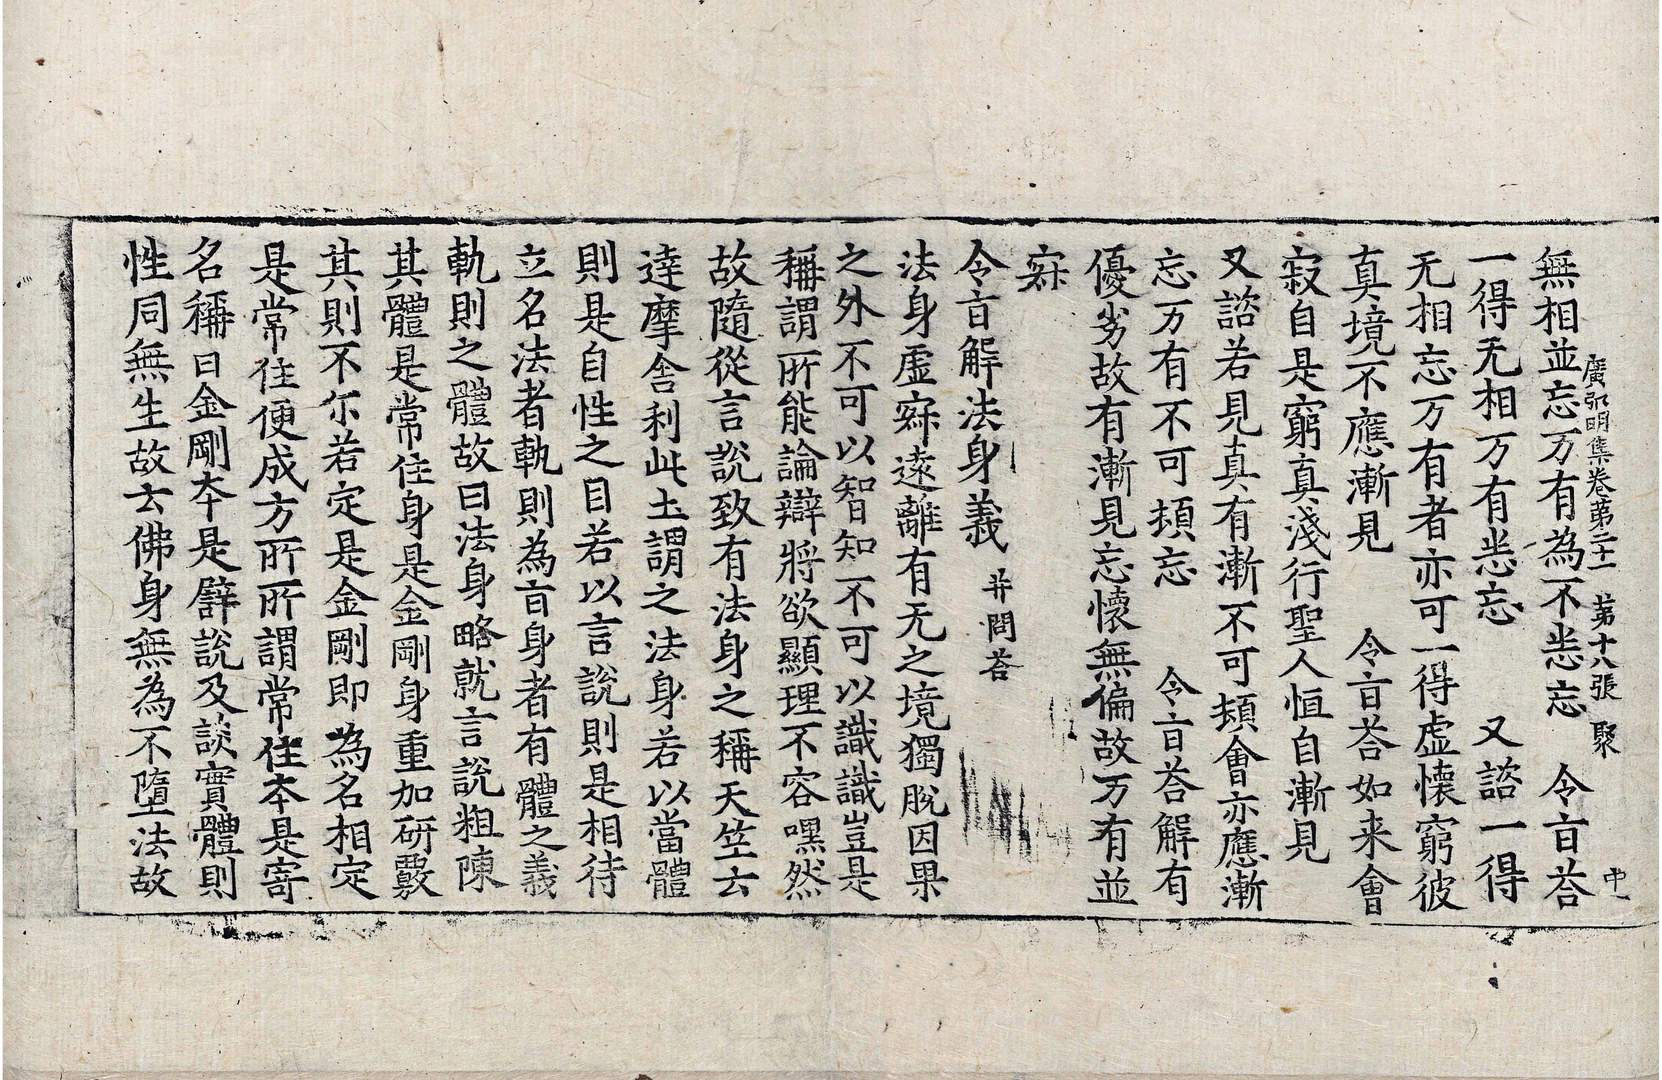 廣弘明集卷第二十一　第十八張　聚
無相並忘万有為不恙忘　令㫖荅
一得无相万有恙忘　又諮一得
无相忘万有者亦可一得虚懷窮彼
真境不應漸見　令㫖荅如来會
寂自是窮真淺行聖人恒自漸見
又諮若見真有漸不可頓會亦應漸
忘万有不可頓忘　令㫖荅解有
優劣故有漸見忘懷無偏故万有並
寂
令㫖解法身義 并問荅
法身虚寂遠離有无之境獨脫因果
之外不可以智知不可以識識豈是
稱謂所能論辯將欲顯理不容嘿然
故隨從言說致有法身之稱天竺云
達摩舎利此土謂之法身若以當體
則是自性之目若以言說則是相待
立名法者軌則為㫖身者有體之義
軌則之體故曰法身略就言說粗陳
其體是常住身是金剛身重加研覈
其則不尒若定是金剛即為名相定
是常住便成方所所謂常住本是寄
名稱曰金剛本是譬說及談實體則
性同無生故云佛身無為不墮法故